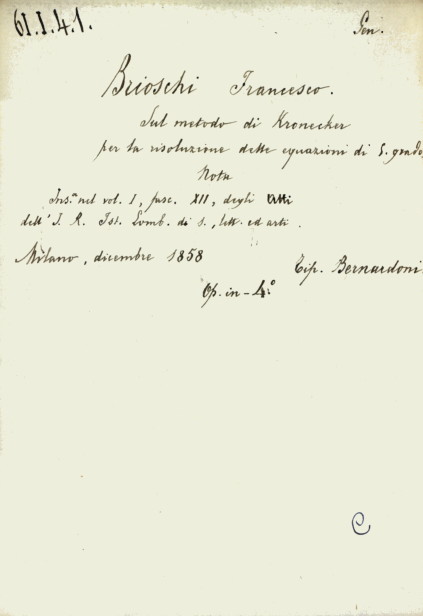 61.I.4.1.
Gen.
Brioschi Francesco.
Sul metodo di Kronecker
per la risoluzione delle equazioni di 5. grado
Nota
Ins.ª nel vol. I, fasc. XII, degli Atti
dell' I. R. Ist. Lomb. di s., lett. ed arti.
Milano, dicembre 1858
Tip. Bernardoni.
Op. in-4.º
C